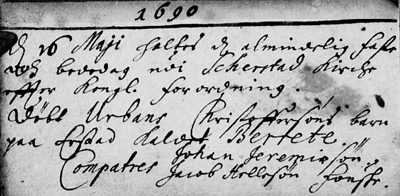 1690
d 16 Maji holtes d almindelig faste
och bededag udi Scherstad Kirche
effter Kongl. forordning.
Döbt Urbans Kristoffersöns barn
paa Erstad kaldet Bertete.
Compatres Johan Jeremiasön,
Jacob Hellesön